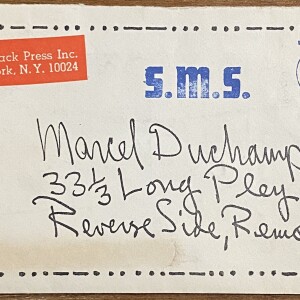 ack Press Inc.
ork, N.Y. 10024
S.M.S.
Marcel Duchamp
33 1/3 Long Play
Reverse Side, Remo